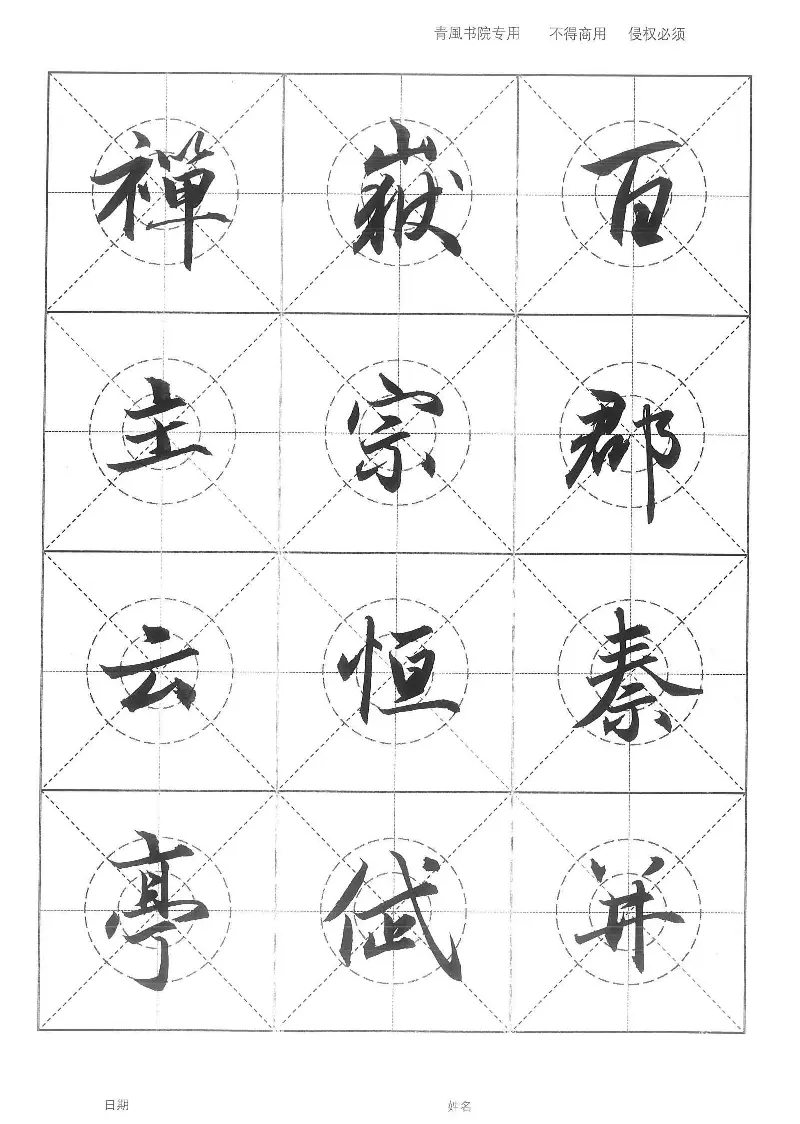 青風书院专用 不得商用 侵权必须
百郡秦并
嶽宗恒岱
禪主云亭
日期 姓名